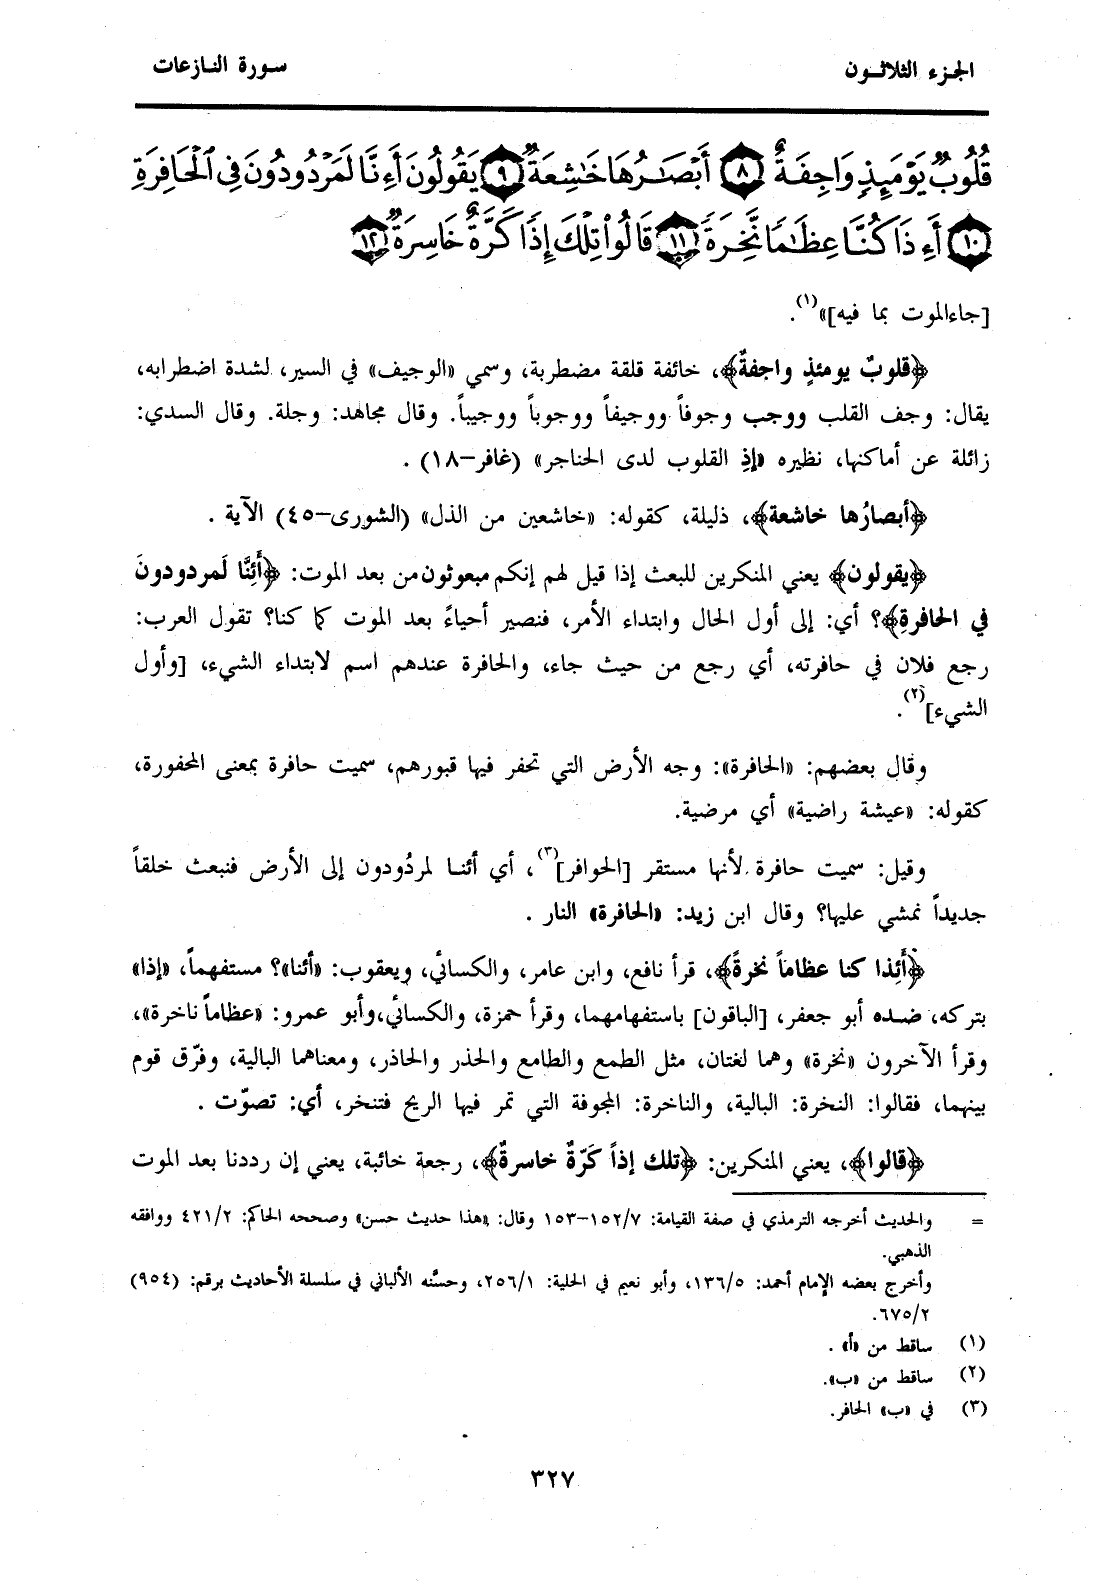 الجزء الثلاثون
سورة النازعات
قُلُوبٌ يَوْمَئِذٍ وَاجِفَةٌ ٨ أَبْصَـٰرُهَا خَـٰشِعَةٌ ٩ يَقُولُونَ أَءِنَّا لَمَرْدُودُونَ فِى ٱلْحَافِرَةِ
١٠ أَءِذَا كُنَّا عِظَـٰمًا نَّخِرَةً ١١ قَالُوا۟ تِلْكَ إِذًا كَرَّةٌ خَاسِرَةٌ ١٢
[جاءالموت بما فيه]»(١).
﴿قلوبٌ يومئذٍ واجفةٌ﴾، خائفة قلقة مضطربة، وسمي «الوجيف» في السير، لشدة اضطرابه،
يقال: وجف القلب ووجب وجوفاً ووجيفاً ووجوباً ووجيباً. وقال مجاهد: وجلة. وقال السدي:
زائلة عن أماكنها، نظيره «إذِ القلوب لدى الحناجر» (غافر–١٨) .
﴿أبصارُها خاشعة﴾، ذليلة، كقوله: «خاشعين من الذل» (الشورى–٤٥) الآية .
﴿يقولون﴾ يعني المنكرين للبعث إذا قيل لهم إنكم مبعوثون من بعد الموت: ﴿أَئِنَّا لَمردودونَ
في الحافرةِ﴾؟ أي: إلى أول الحال وابتداء الأمر، فنصير أحياءً بعد الموت كما كنا؟ تقول العرب:
رجع فلان في حافرته، أي رجع من حيث جاء، والحافرة عندهم اسم لابتداء الشيء، [وأول
الشيء](٢).
وقال بعضهم: «الحافرة»: وجه الأرض التي تحفر فيها قبورهم، سميت حافرة بمعنى المحفورة،
كقوله: «عيشة راضية» أي مرضية.
وقيل: سميت حافرة لأنها مستقر [الحوافر](٣)، أي أئنا لمردُودون إلى الأرض فنبعث خلقاً
جديداً نمشي عليها؟ وقال ابن زيد: «الحافرة» النار .
﴿أَئِذا كنا عظاماً نخرةً﴾، قرأ نافع، وابن عامر، والكسائي، ويعقوب: «أئنا»؟ مستفهماً، «إذا»
بتركه، ضده أبو جعفر، [الباقون] باستفهامهما، وقرأ حمزة، والكسائي، وأبو عمرو: «عظاماً ناخرة»،
وقرأ الآخرون «نخرة» وهما لغتان، مثل الطمع والطامع والحذر والحاذر، ومعناهما البالية، وفرّق قوم
بينهما، فقالوا: النخرة: البالية، والناخرة: المجوفة التي تمر فيها الريح فتنخر، أي: تصوّت .
﴿قالوا﴾، يعني المنكرين: ﴿تلك إذاً كَرّةٌ خاسرةٌ﴾، رجعة خائبة، يعني إن رددنا بعد الموت
= والحديث أخرجه الترمذي في صفة القيامة: ١٥٢/٧–١٥٣ وقال: «هذا حديث حسن» وصححه الحاكم: ٤٢١/٢ ووافقه
الذهبي.
وأخرج بعضه الإمام أحمد: ١٣٦/٥، وأبو نعيم في الحلية: ٢٥٦/١، وحسَّنه الألباني في سلسلة الأحاديث برقم: (٩٥٤)
٦٧٥/٢.
(١) ساقط من «أ» .
(٢) ساقط من «ب».
(٣) في «ب» الحافر.
٣٢٧